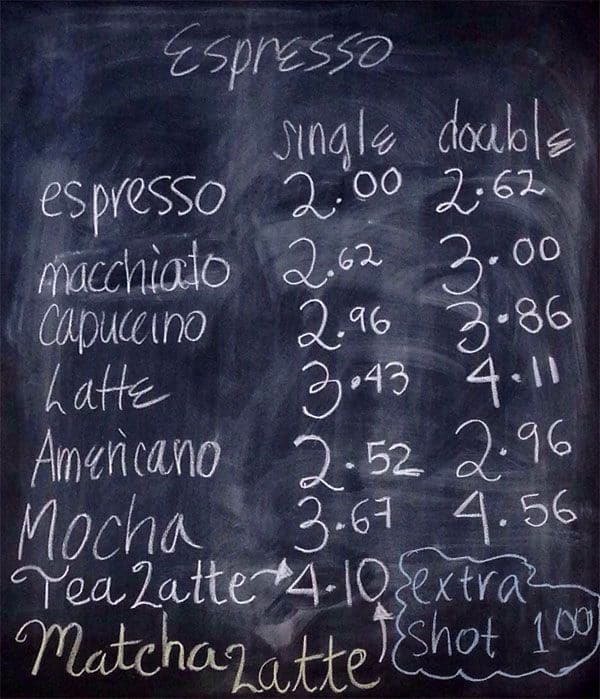 Espresso
single double
espresso 2.00 2.62
macchiato 2.62 3.00
Capuccino 2.96 3.86
Latte 3.43 4.11
Americano 2.52 2.96
Mocha 3.67 4.56
Tea Latte → 4.10
Matcha Latte ↑
extra
shot 1.00